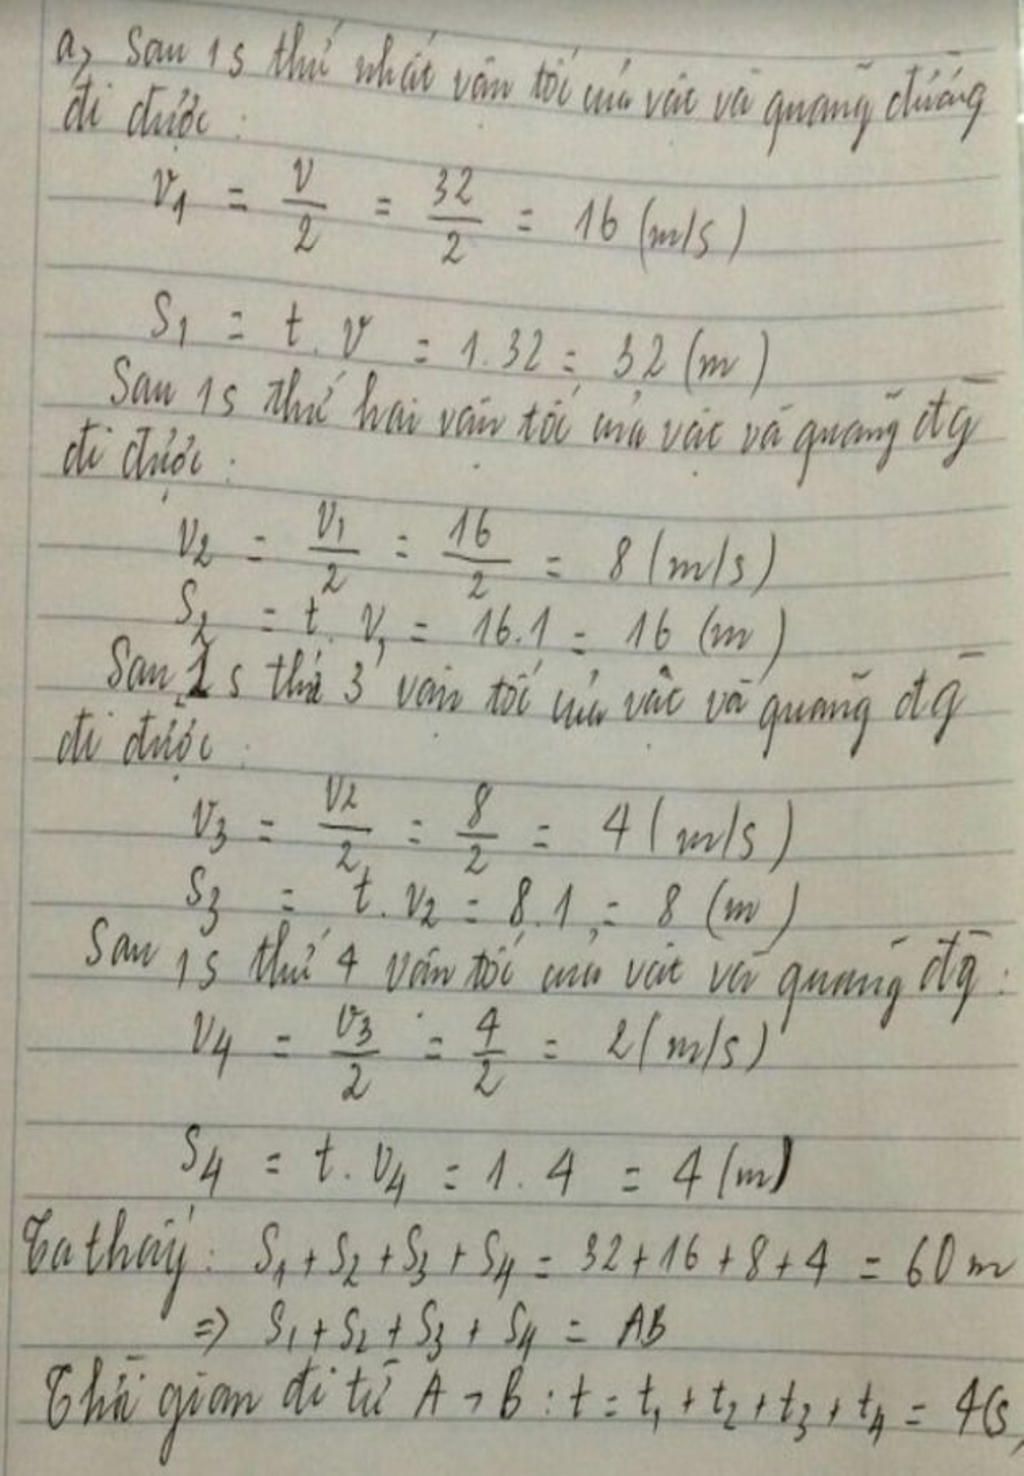 a, Sau 1s thứ nhất vận tốc của vật và quãng đường
đi được :
v₁ = v/2 = 32/2 = 16 (m/s)
S₁ = t.v = 1.32 = 32 (m)
Sau 1s thứ hai vận tốc của vật và quãng đg
đi được :
v₂ = v₁/2 = 16/2 = 8 (m/s)
S₂ = t.v₁ = 16.1 = 16 (m)
Sau 1s thứ 3 vận tốc của vật và quãng đg
đi được :
v₃ = v₂/2 = 8/2 = 4 (m/s)
S₃ = t.v₂ = 8.1 = 8 (m)
Sau 1s thứ 4 vận tốc của vật và quãng đg :
v₄ = v₃/2 = 4/2 = 2 (m/s)
S₄ = t.v₄ = 1.4 = 4 (m)
Ta thấy : S₁ + S₂ + S₃ + S₄ = 32 + 16 + 8 + 4 = 60 m
=> S₁ + S₂ + S₃ + S₄ = AB
Thời gian đi từ A → B : t = t₁ + t₂ + t₃ + t₄ = 4(s)